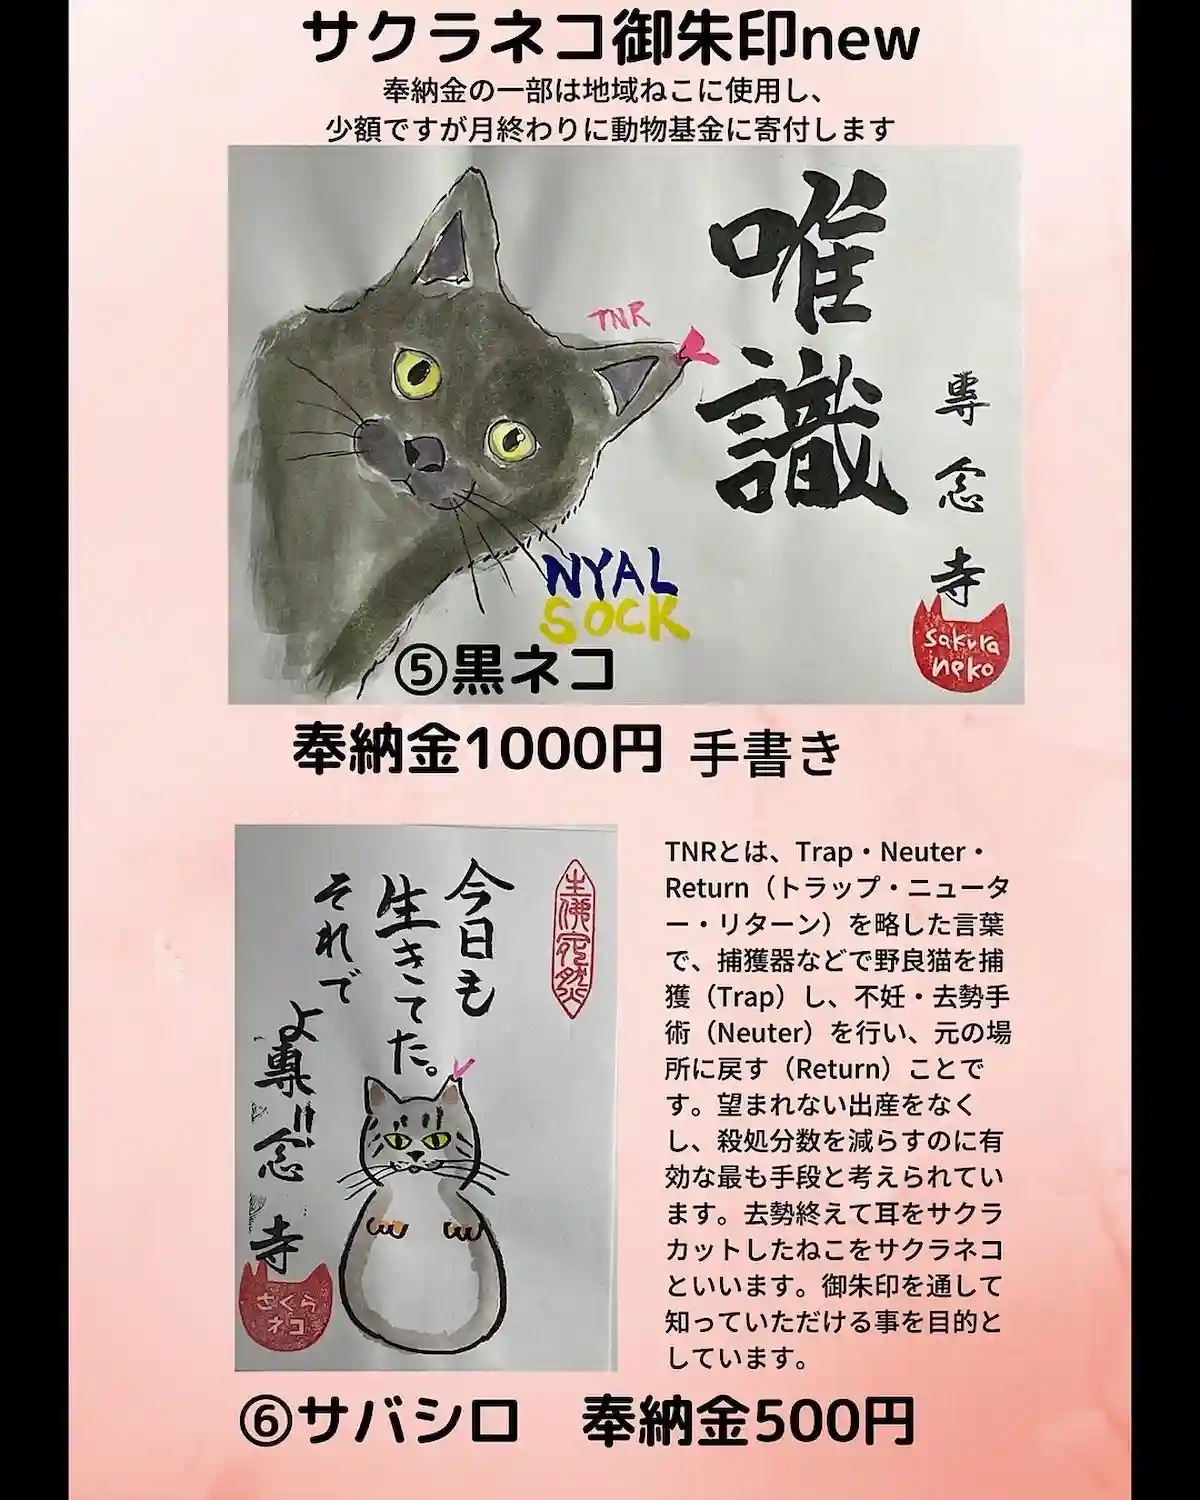 サクラネコ御朱印new
奉納金の一部は地域ねこに使用し、
少額ですが月終わりに動物基金に寄付します
唯識
TNR
專念寺
NYAL
SOCK
sakura
neko
⑤黒ネコ
奉納金1000円 手書き
今日も
生きてた。
それで
よ
專念寺
さくら
ネコ
TNRとは、Trap・Neuter・
Return（トラップ・ニュータ
ー・リターン）を略した言葉
で、捕獲器などで野良猫を捕
獲（Trap）し、不妊・去勢手
術（Neuter）を行い、元の場
所に戻す（Return）ことで
す。望まれない出産をなく
し、殺処分数を減らすのに有
効な最も手段と考えられてい
ます。去勢終えて耳をサクラ
カットしたねこをサクラネコ
といいます。御朱印を通して
知っていただける事を目的と
しています。
⑥サバシロ 奉納金500円